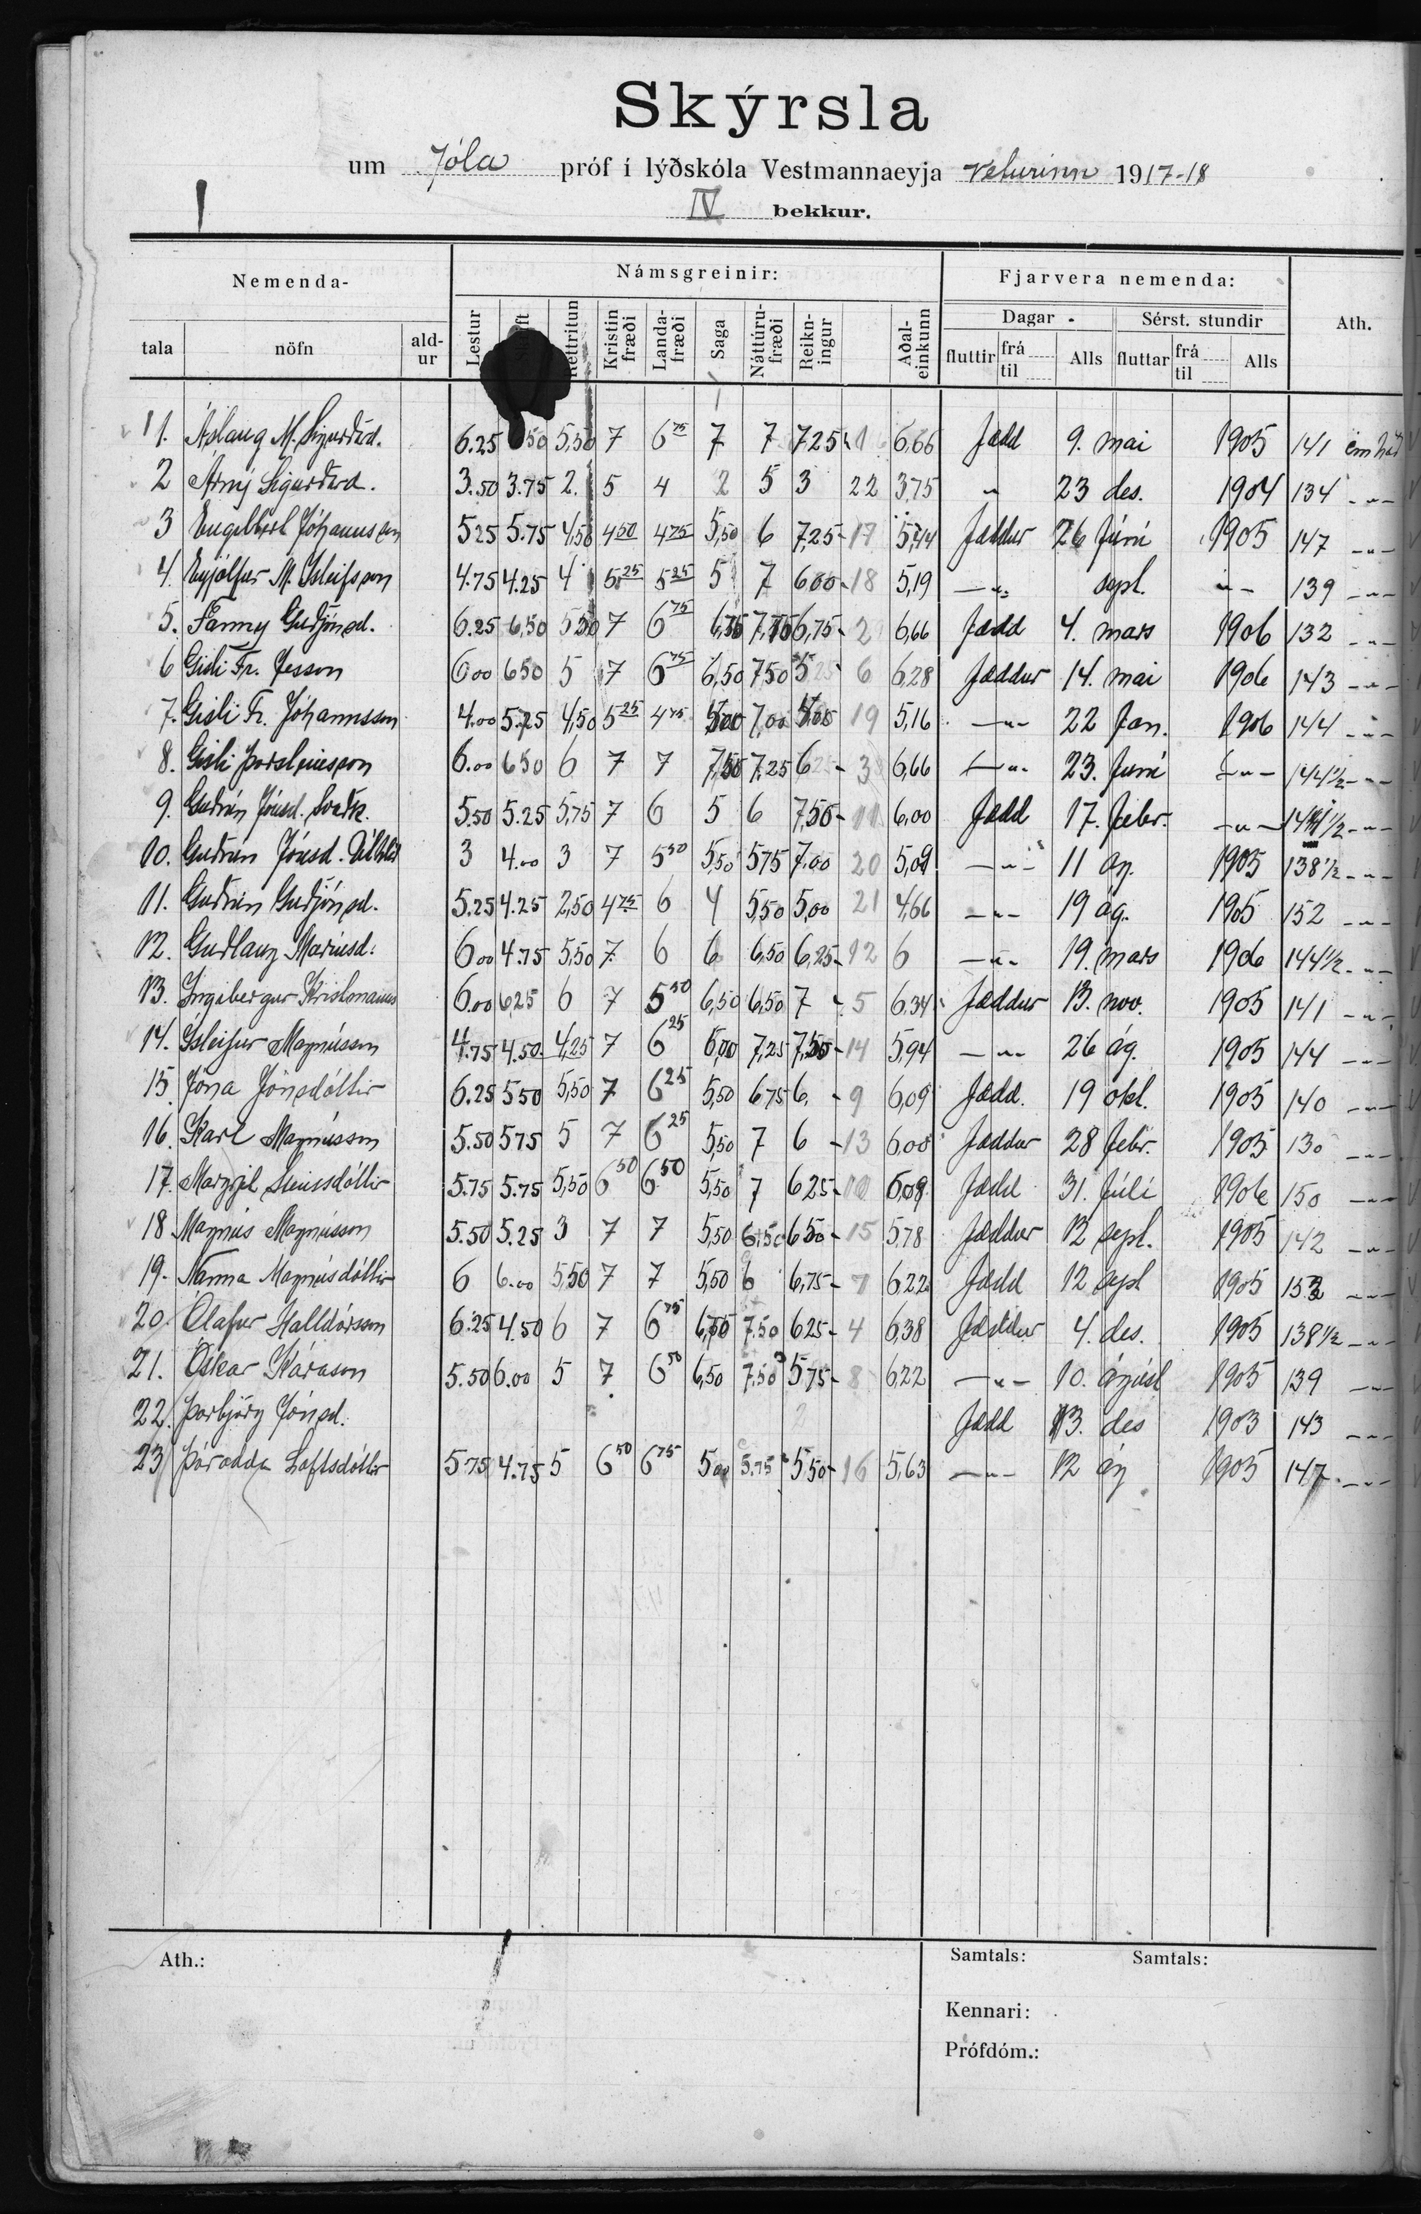 Skýrsla
um Jóla próf í lýðskóla Vestmannaeyja Veturinn 1917-18
IV bekkur.
Nemenda- Námsgreinir: Fjarvera nemenda: Ath.
tala nöfn ald-ur Lestur Réttritun Kristin fræði Landa-fræði Saga Náttúru-fræði Reikn-ingur Aðal-einkunn Dagar Sérst. stundir
fluttir frá til Alls fluttar frá til Alls
1. Áslaug M. Sigurðrd. 6.25 50 5,50 7 6 75 7 7 7,25 1 6,66 Fædd 9. mai 1905 141
2 Árný Sigurðrd. 3.50 3.75 2. 5 4 2 5 3 22 3,75 " 23 des. 1904 134 -"-
3 Engilbert Jóhannsson 525 5.75 4,50 4 50 4 75 5,50 6 7,25 - 17 5,44 Fæddur 26 Júní 1905 147 -"-
4. Eyjólfur M. Ísleifsson 4.75 4.25 4 5 25 5 25 5 7 600 - 18 5,19 -"- sept. -"- 139 -"-
5. Fanny Guðjónsd. 6.25 6,50 5 50 7 6 75 6,75 7,75 6,75 - 2 6,66 Fædd 4. mars 1906 132 -"-
6 Gísli Fr. Jesson 6 00 650 5 7 6 75 6,50 750 5 25 6 6,28 Fæddur 14. mai 1906 143 -"-
7. Gísli Fr. Jóhannsson 4.00 5.25 4,50 5 25 4 75 5,00 7,00 5,00 19 5,16 -"- 22 Jan. 1906 144 -"-
8. Gísli Þorsteinsson 6.00 650 6 7 7 7,50 7.25 6 25 - 3 6,66 -"- 23. Júní -"- 144 1/2 -"-
9. Guðrún Jónsd. 5.50 5.25 5,75 7 6 5 6 7,50 - 11 6,00 Fædd 17. febr. -"- 1/2 -"-
10. Guðrún Jónsd. 3 4.00 3 7 5 50 5,50 575 7,00 20 5,09 -"- 11 ág. 1905 138 1/2 -"-
11. Guðrún Guðjónsd. 5.25 4.25 2,50 4 75 6 4 5,50 5,00 21 4,66 -"- 19 ág. 1905 152 -"-
12. Guðlaug Maríusd. 6 00 4.75 5,50 7. 6 6 6,50 6,25 - 12 6 -"- 19. mars 1906 144 1/2 -"-
13. Ingibergur Kristmanns 6.00 625 6 7 5 50 6,50 6,50 7 - 5 6,34 Fæddur 13. nov. 1905 141 -"-
14. Ísleifur Magnússon 4.75 4.50 4,25 7 6 25 6,00 7,25 7,50 - 14 5,94 -"- 26 ág. 1905 144 -"-
15. Jóna Jónsdóttir 6.25 550 5,50 7. 6 25 5,50 675 6. - 9 6,09 Fædd. 19 okt. 1905 140 -"-
16. Karl Magnússon 5.50 575 5 7 6 25 5,50 7 6 - 13 6,00 Fæddur 28 febr. 1905 130 -"-
17. Margrjet Sveinsdóttir 5.75 5.75 5,50 6 50 6 50 5,50 7 625 - 10 6,09 Fædd 31. Júlí 1906 150 -"-
18 Magnús Magnússon 5.50 5.25 3 7 7 5,50 6.50 650 - 15 5,78 Fæddur 12 sept. 1905 142 -"-
19. Nanna Magnúsdóttir 6 6.00 5,50 7 7 5,50 6 6,75 - 7 6,22 Fædd 12 sept 1905 153 -"-
20. Ólafur Halldórsson 6.25 4.50 6 7 6 75 6,75 7.50 625 - 4 6,38 Fæddur 4. des. 1905 138 1/2 -"-
21. Óskar Kárason 5.50 6.00 5 7 6 50 6,50 7.50 575 - 8 6,22 -"- 10. ágúst 1905 139 -"-
22. Þorbjörg Jónsd. Fædd 13. des 1903 143 -"-
23 Þórodda Loftsdóttir 575 4.75 5 6 50 6 75 5 00 5.75 5 50 - 16 5,63 -"- 12 ág 1905 147 -"-
Ath.: Samtals: Samtals:
Kennari:
Prófdóm.: